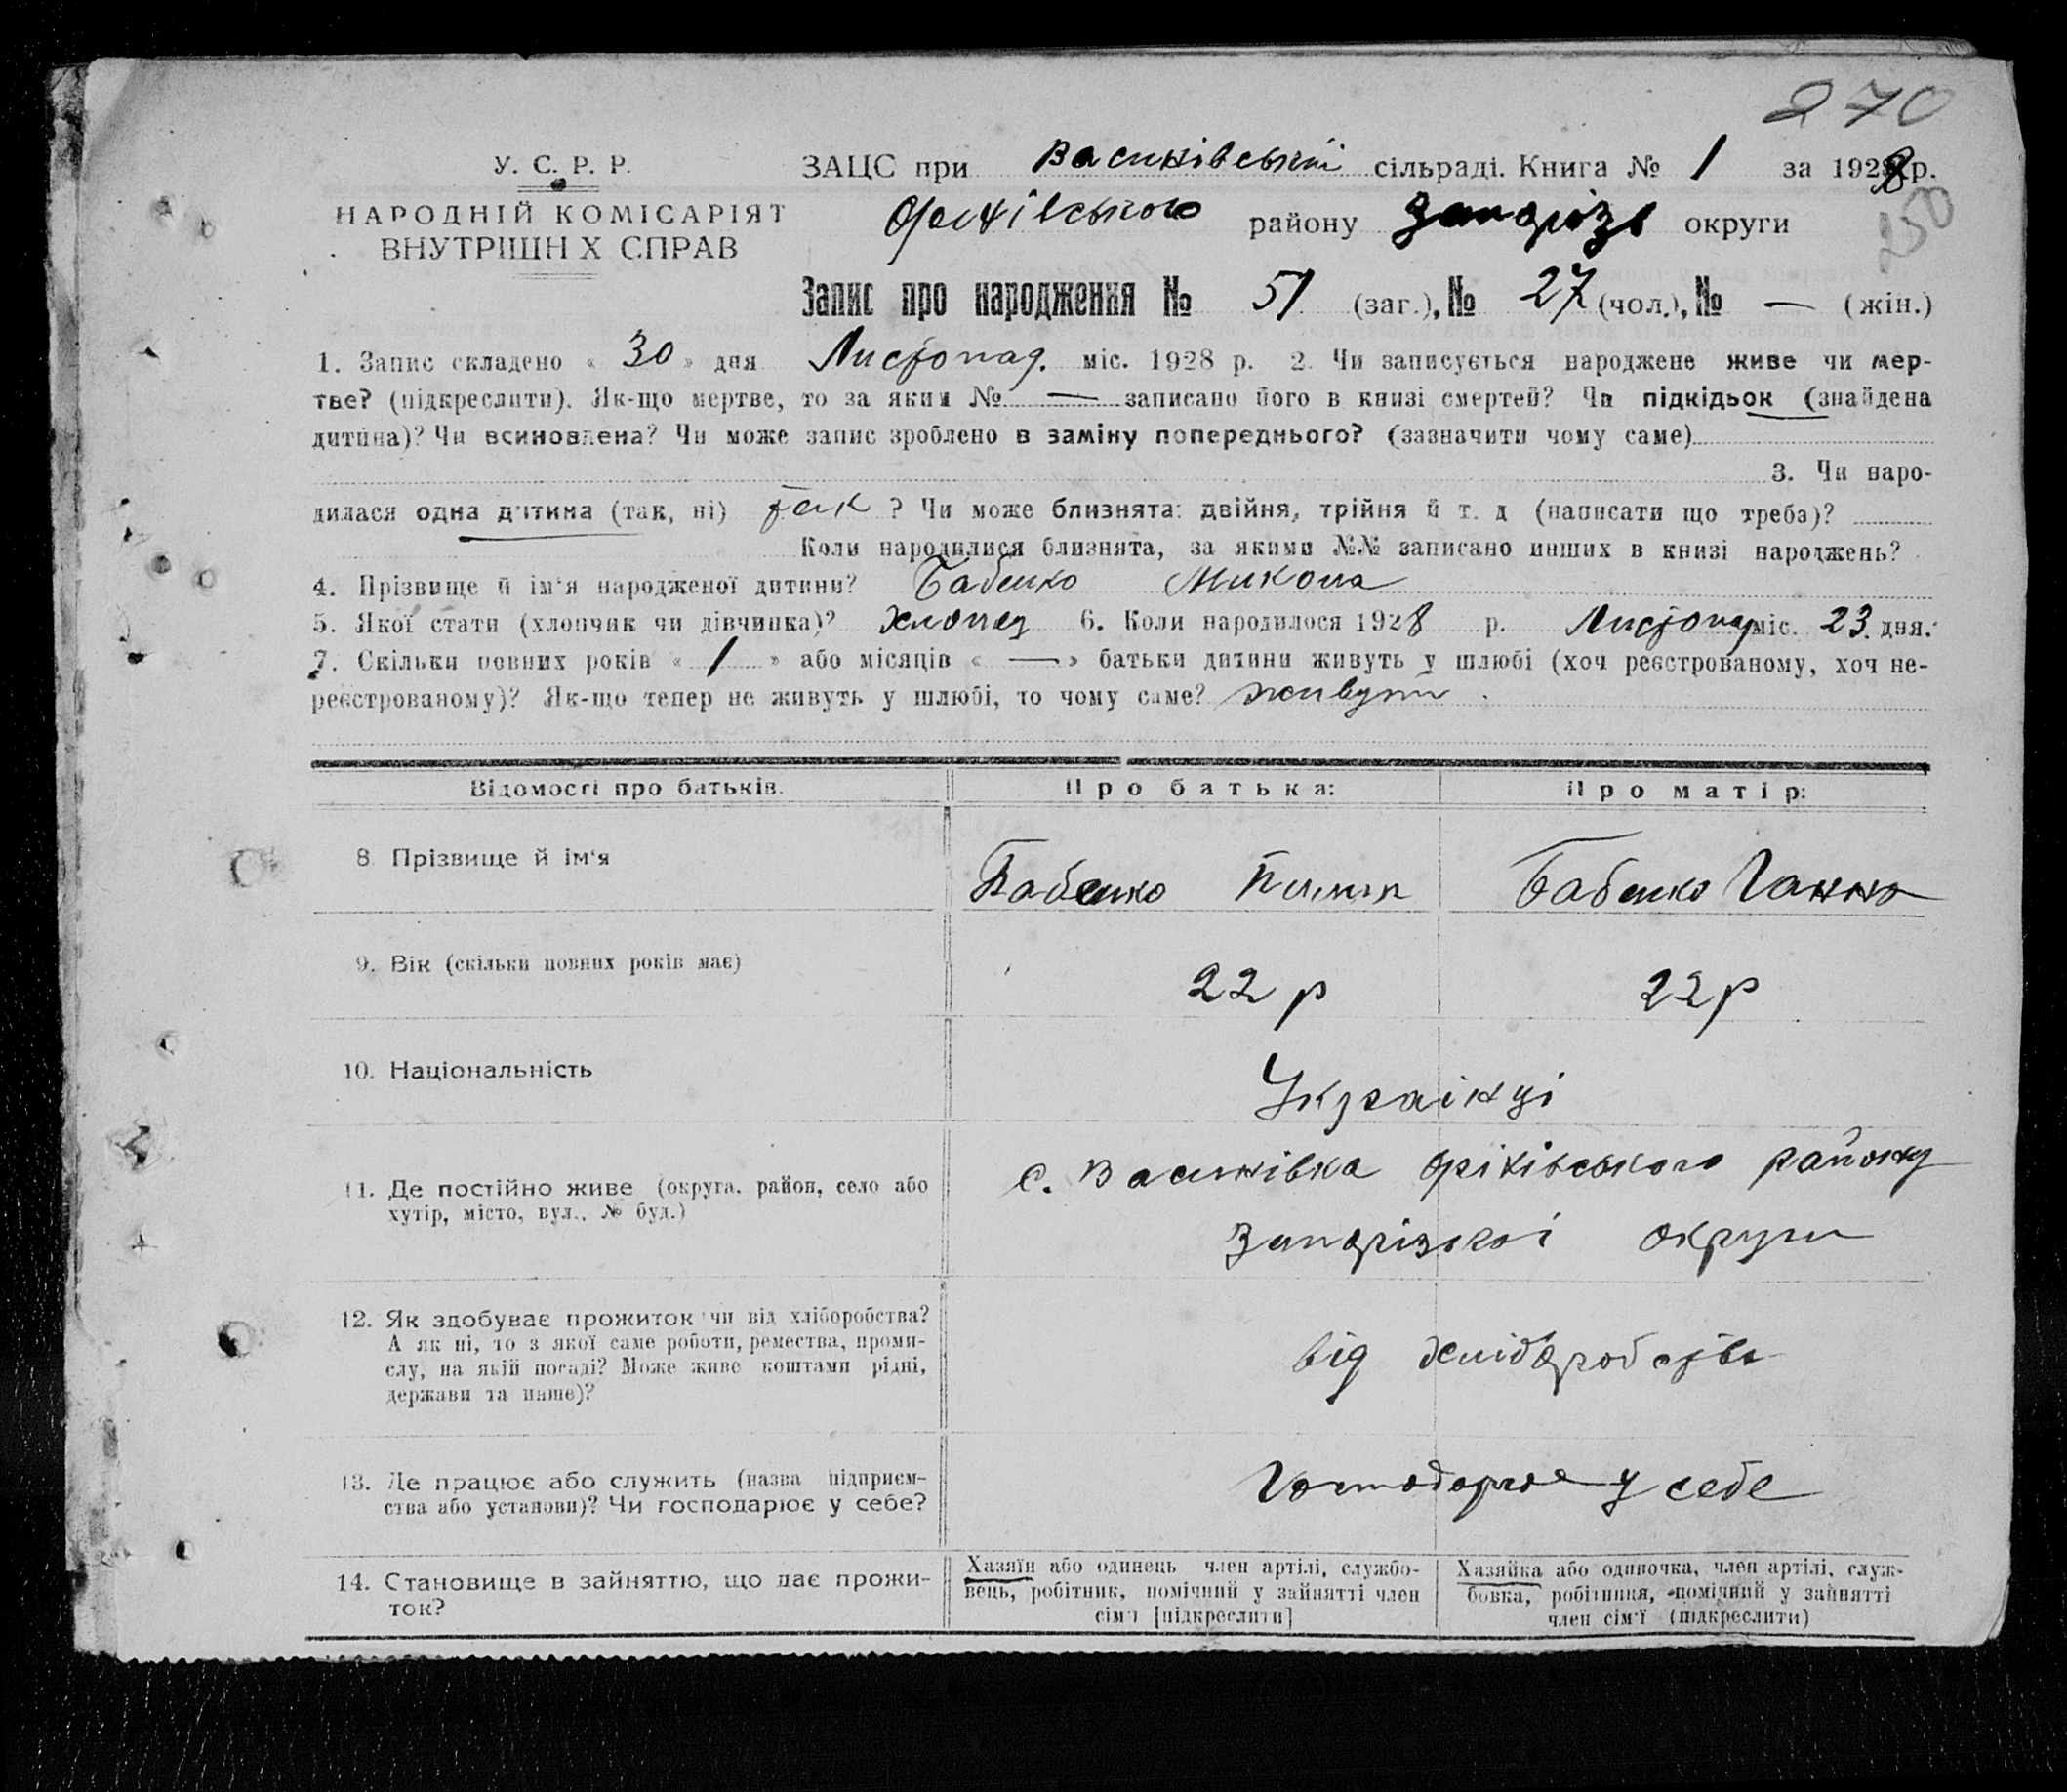 270
У. С. Р. Р.
НАРОДНІЙ КОМІСАРІЯТ
ВНУТРІШН Х СПРАВ
ЗАЦС при Васинівській сільраді. Книга № 1 за 1928 р.
Оріхівського району Запоріз. округи
250
Запис про народження № 51 (заг.), № 27 (чол.), № — (жін.)
1. Запис складено « 30 » дня Листопад. міс. 1928 р. 2. Чи записується народжене живе чи мер-
тве? (підкреслити). Як-що мертве, то за яким № — записано його в книзі смертей? Чи підкідьок (знайдена
дитина)? Чи всиновлена? Чи може запис зроблено в заміну попереднього? (зазначити чому саме)
3. Чи наро-
дилася одна дитина (так, ні) так ? Чи може близнята: двійня, трійня й т. д (написати що треба)?
Коли народилися близнята, за якими №№ записано инших в книзі народжень?
4. Прізвище й ім'я народженої дитини? Бабенко Микола
5. Якої стати (хлопчик чи дівчинка)? хлопец 6. Коли народилося 1928 р. Листопад міс. 23 дня.
7. Скільки повних років « 1 » або місяців « — » батьки дитини живуть у шлюбі (хоч реєстрованому, хоч не-
реєстрованому)? Як-що тепер не живуть у шлюбі, то чому саме? живуть
Відомості про батьків. Про батька: Про матір:
8. Прізвище й ім'я Бабенко Бабенко Ганна
9. Вік (скільки повних років має) 22 р 22 р
10. Національність Українці
11. Де постійно живе (округа, район, село або
хутір, місто, вул., № буд.)
с. Васинівка Оріхівського району
Запорізької округи
12. Як здобуває прожиток чи від хліборобства?
А як ні, то з якої саме роботи, ремества, проми-
слу, на якій посаді? Може живе коштами рідні,
держави та инше)?
від хліборобства
13. Де працює або служить (назва підприєм-
ства або установи)? Чи господарює у себе?
Господарює у себе
14. Становище в зайняттю, що дає прожи-
ток?
Хазяїн або одинець член артілі, службо-
вець, робітник, помічний у зайнятті член
сім'ї [підкреслити]
Хазяйка або одиночка, член артілі, служ-
бовка, робітниця, помічний у зайнятті
член сім'ї (підкреслити)